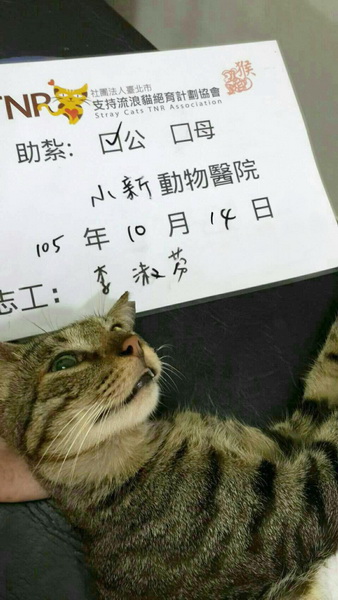 TNR 社團法人臺北市
支持流浪貓絕育計劃協會
Stray Cats TNR Association
助紮: ☑公 □母
小新動物醫院
105年10月14日
志工: 李淑芬